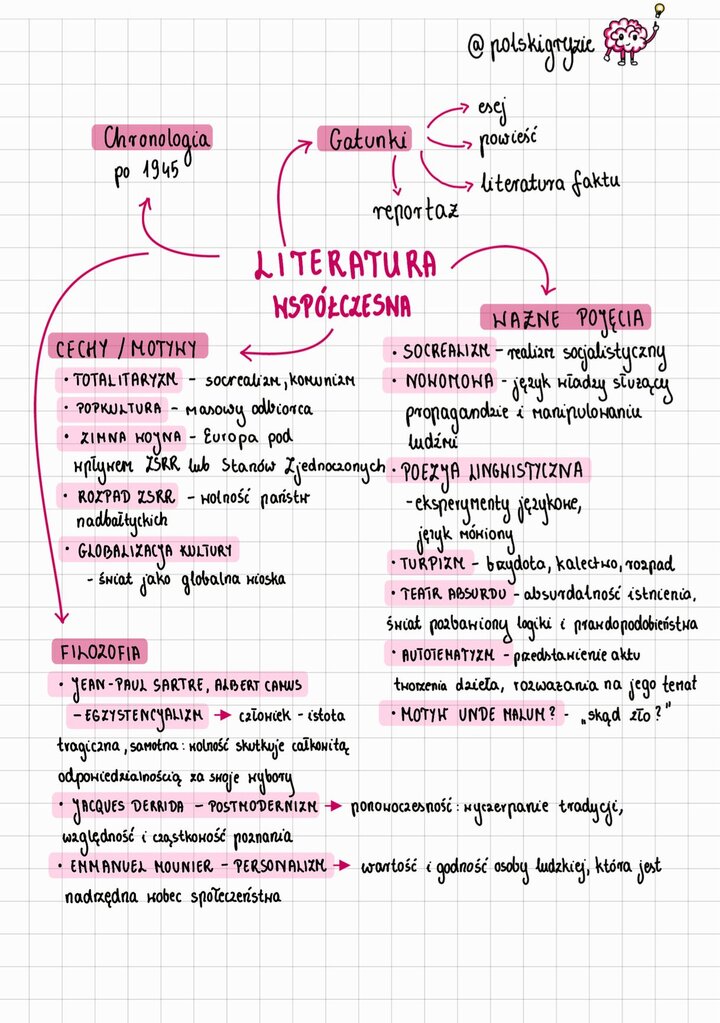 @polskigryzie
Chronologia
po 1945
Gatunki
esej
powieść
literatura faktu
reportaż
LITERATURA
WSPÓŁCZESNA
CECHY / MOTYWY
• TOTALITARYZM - socrealizm, komunizm
• POPKULTURA - masowy odbiorca
• ZIMNA WOJNA - Europa pod
wpływem ZSRR lub Stanów Zjednoczonych
• ROZPAD ZSRR - wolność państw
nadbałtyckich
• GLOBALIZACJA KULTURY
- świat jako globalna wioska
WAŻNE POJĘCIA
• SOCREALIZM - realizm socjalistyczny
• NOWOMOWA - język władzy służący
propagandzie i manipulowaniu
ludźmi
• POEZJA LINGWISTYCZNA
- eksperymenty językowe,
język mówiony
• TURPIZM - brzydota, kalectwo, rozpad
• TEATR ABSURDU - absurdalność istnienia,
świat pozbawiony logiki i prawdopodobieństwa
• AUTOTEMATYZM - przedstawienie aktu
tworzenia dzieła, rozważania na jego temat
• MOTYW UNDE MALUM? - „skąd zło?"
FILOZOFIA
• JEAN-PAUL SARTRE, ALBERT CAMUS
- EGZYSTENCJALIZM → człowiek - istota
tragiczna, samotna: wolność skutkuje całkowitą
odpowiedzialnością za swoje wybory
• JACQUES DERRIDA - POSTMODERNIZM → ponowoczesność: wyczerpanie tradycji,
względność i cząstkowość poznania
• EMMANUEL MOUNIER - PERSONALIZM → wartość i godność osoby ludzkiej, która jest
nadrzędna wobec społeczeństwa